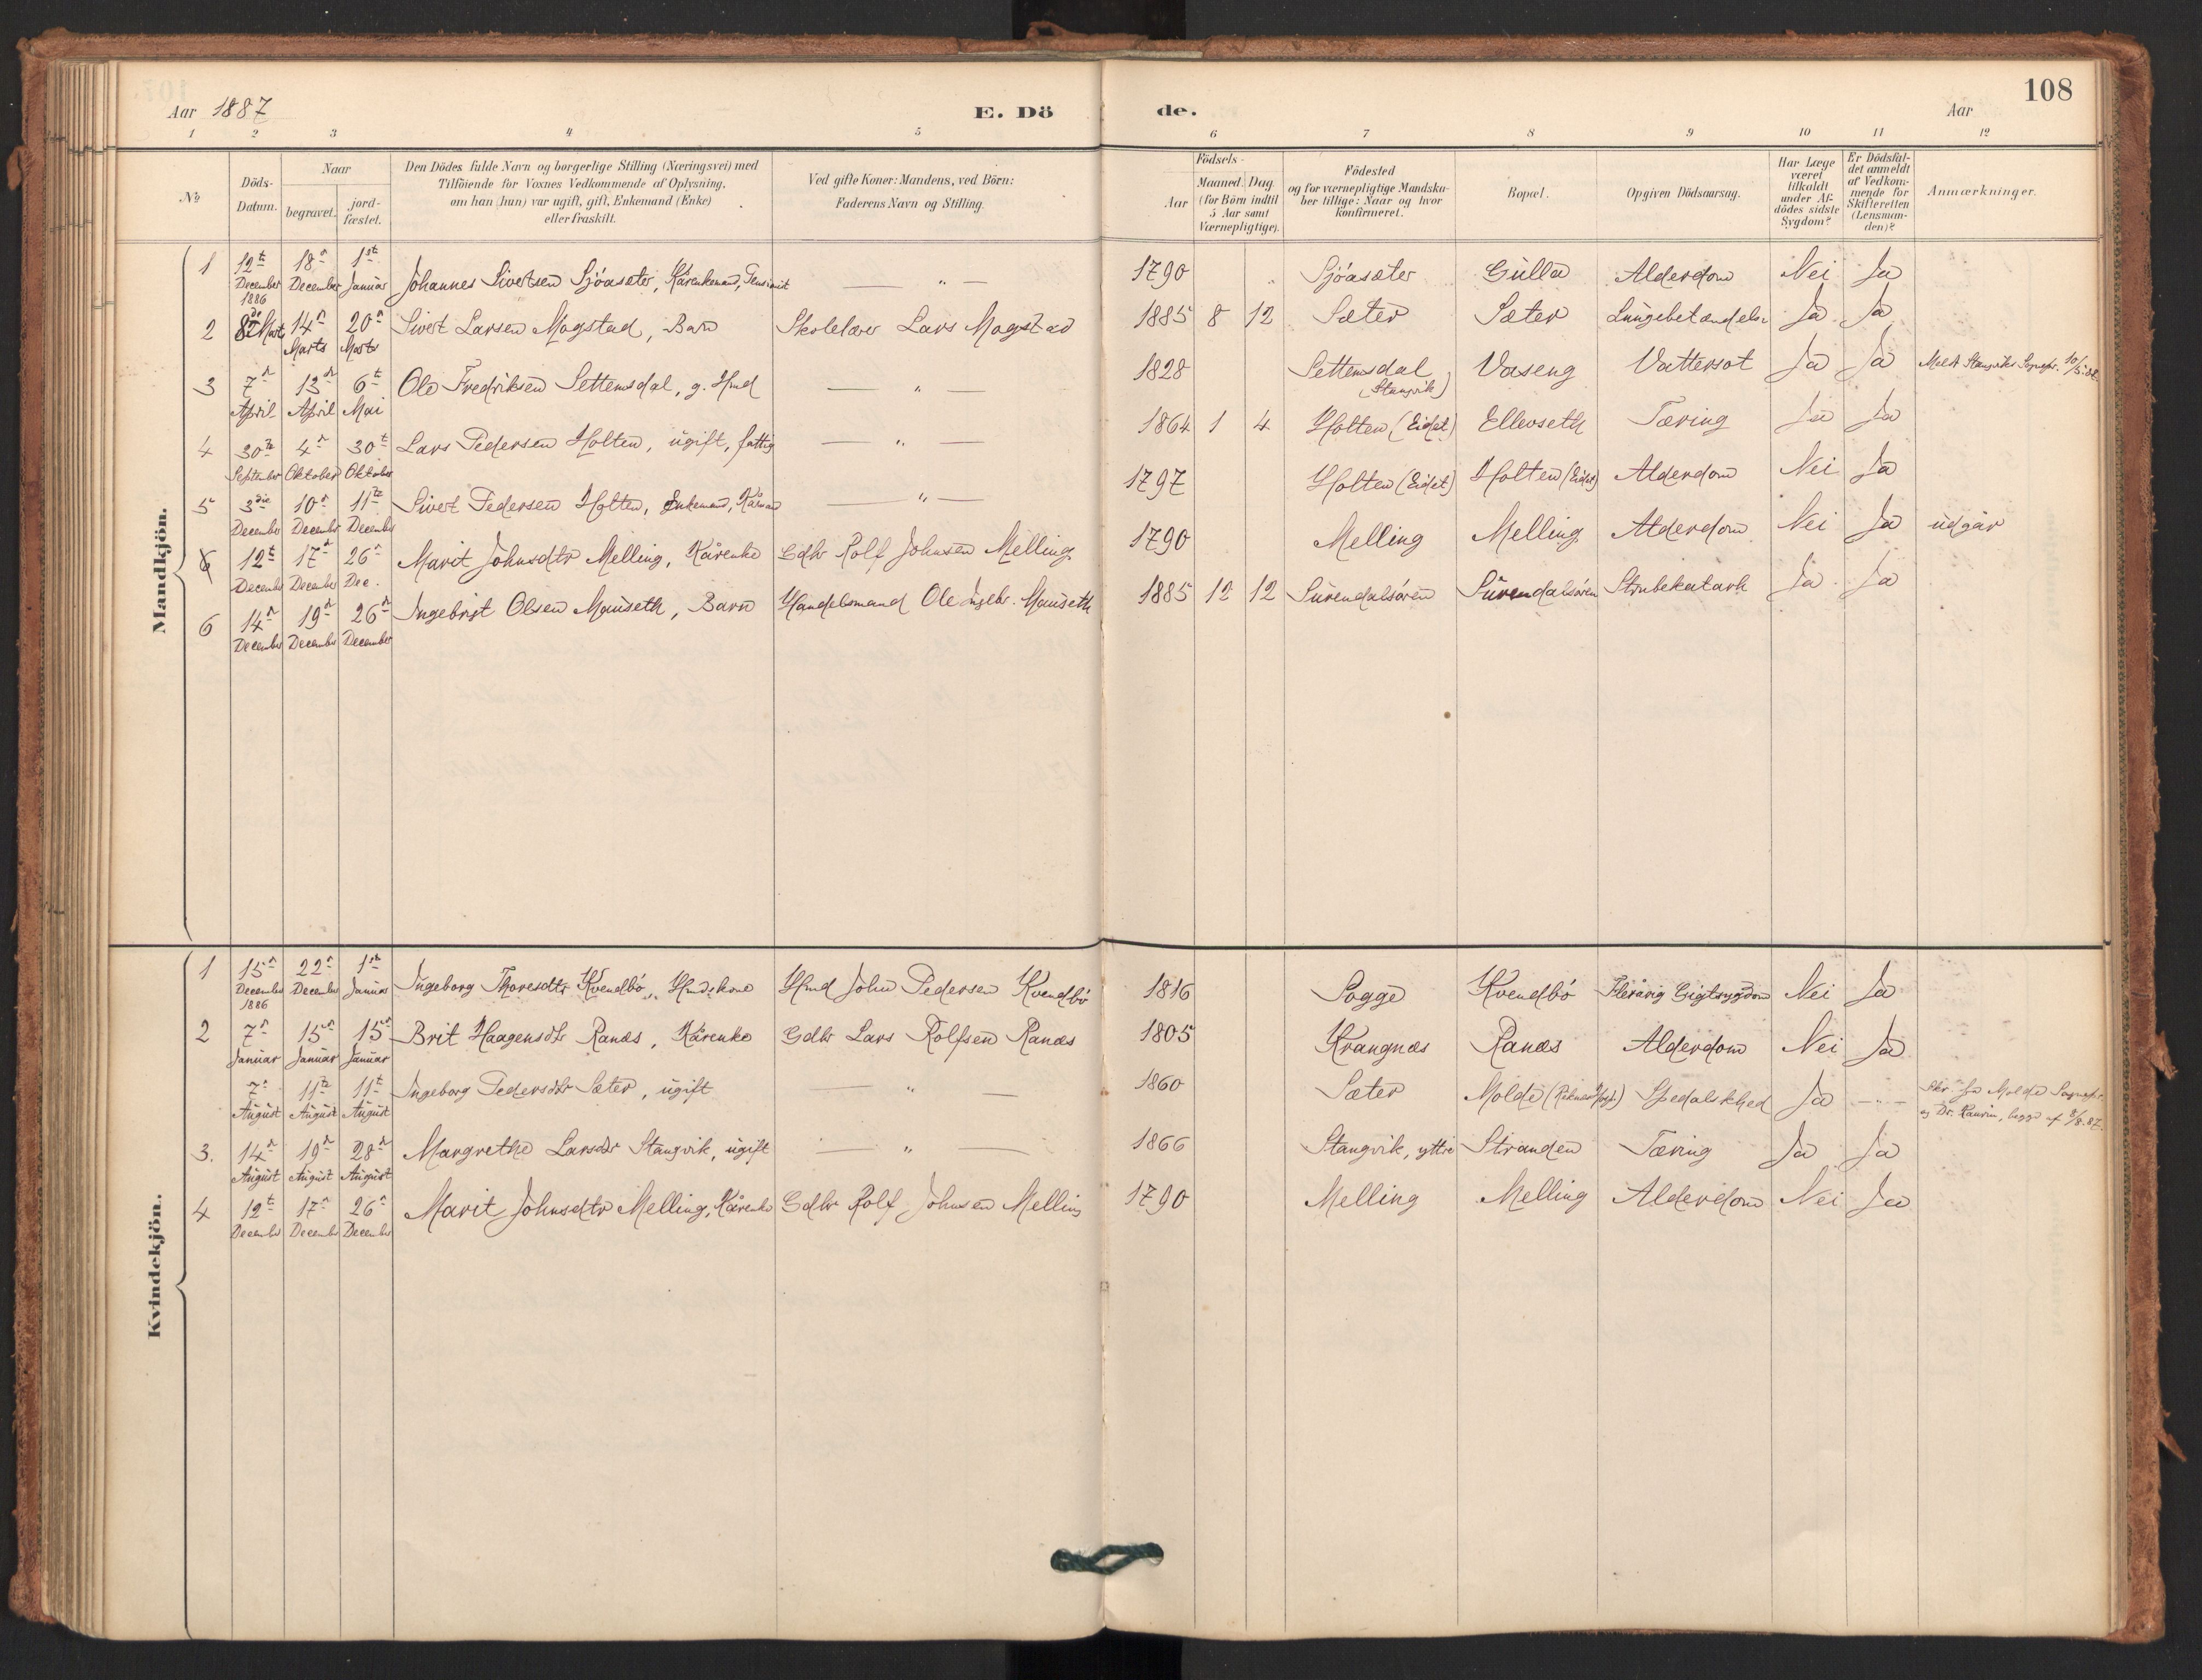 108
Aar 1887 E. Dö de. Aar
1 2 3 4 5 6 7 8 9 10 11 12
No
Döds-Datum.
Naar
begravet. jord-fæstet.
Den Dödes fulde Navn og borgerlige Stilling (Næringsvei) med
Tilföiende for Voxnes Vedkommende af Oplysning,
om han (hun) var ugift, gift, Enkemand (Enke)
eller fraskilt.
Ved gifte Koner: Mandens, ved Börn:
Faderens Navn og Stilling.
Födsels-
Aar Maaned. Dag
(for Börn indtil
5 Aar samt
Værnepligtige).
Födested
og for værnepligtige Mandska-
ber tillige: Naar og hvor
konfirmeret.
Bopæl.
Opgiven Dödsaarsag.
Har Læge
været
tilkaldt
under Af-
dödes sidste
Sygdom?
Er Dödsfal-
det anmeldt
af Vedkom-
mende for
Skifteretten
(Lensman-
den)?
Anmærkninger.
Mandkjön.
1 12te December 1886 18de December 1ste Januar Johannes Sivertsen Sjöasæter, Kårenkemand, — " — 1790 " Sjöasæter Gulla Alderdom Nei Ja
2 8de Marts 14de Marts 20de Marts Sivert Larsen Mogstad, Barn Skolelærer Lars Mogstad 1885 8 12 Sæter Sæter Lungebetændelse Ja Ja
3 7de April 13de April 6te Mai Ole Fredriksen Settemsdal, g. Hmd — " — 1828 Settemsdal (Stangvik) Vaseng Vattersot Ja Ja Meldt Stangviks Sognepr. 10/5.87
4 30te September 4de Oktober 30te Oktober Lars Pedersen Holten, ugift, fattig — " — 1864 1 4 Holten (Eidet) Ellevseth Tæring Ja Ja
5 3die December 10de December 11te December Sivert Pedersen Holten, Enkemand, Kårmand — " — 1797 Holten (Eidet) Holten (Eidet) Alderdom Nei Ja
6 12te December 17de December 26de Dec. Marit Johnsdtr Melling, Kårenke Gdbr Rolf Johnsen Melling 1790 Melling Melling Alderdom Nei Ja udgår
6 14de December 19de December 26de December Ingebrigt Olsen Mauseth, Barn Handelsmand Ole Ingebr. Mauseth 1885 12 12 Surendalsören Surendalsören Strubekatarh Ja Ja
Kvindekjön.
1 15de December 1886 22de December 1ste Januar Ingeborg Thoresdtr Kvendbö, Hmdskone Hmd John Pedersen Kvendbö 1816 Sogge Kvendbö Flerårig Gigtsygdom Nei Ja
2 7de Januar 15de Januar 15de Januar Brit Haagensdtr Ranæs, Kårenke Gdbr Lars Rolfsen Ranæs 1805 Krangnæs Ranæs Alderdom Nei Ja
7de August 11te August 11te August Ingeborg Pedersdtr Sæter, ugift — " — 1860 Sæter Molde (Reknes Hosp.) Spedalskhed Ja — " — Skr. fra Molde Sognepr. og Dr. Kaurin, begge af 9/8.87.
3. 14de August 19de August 28de August Margrethe Larsdtr Stangvik, ugift — " — 1866 Stangvik, yttre Stranden Tæring Ja Ja
4 12te December 17de December 26de December Marit Johnsdtr Melling, Kårenke Gdbr Rolf Johnsen Melling 1790 Melling Melling Alderdom Nei Ja